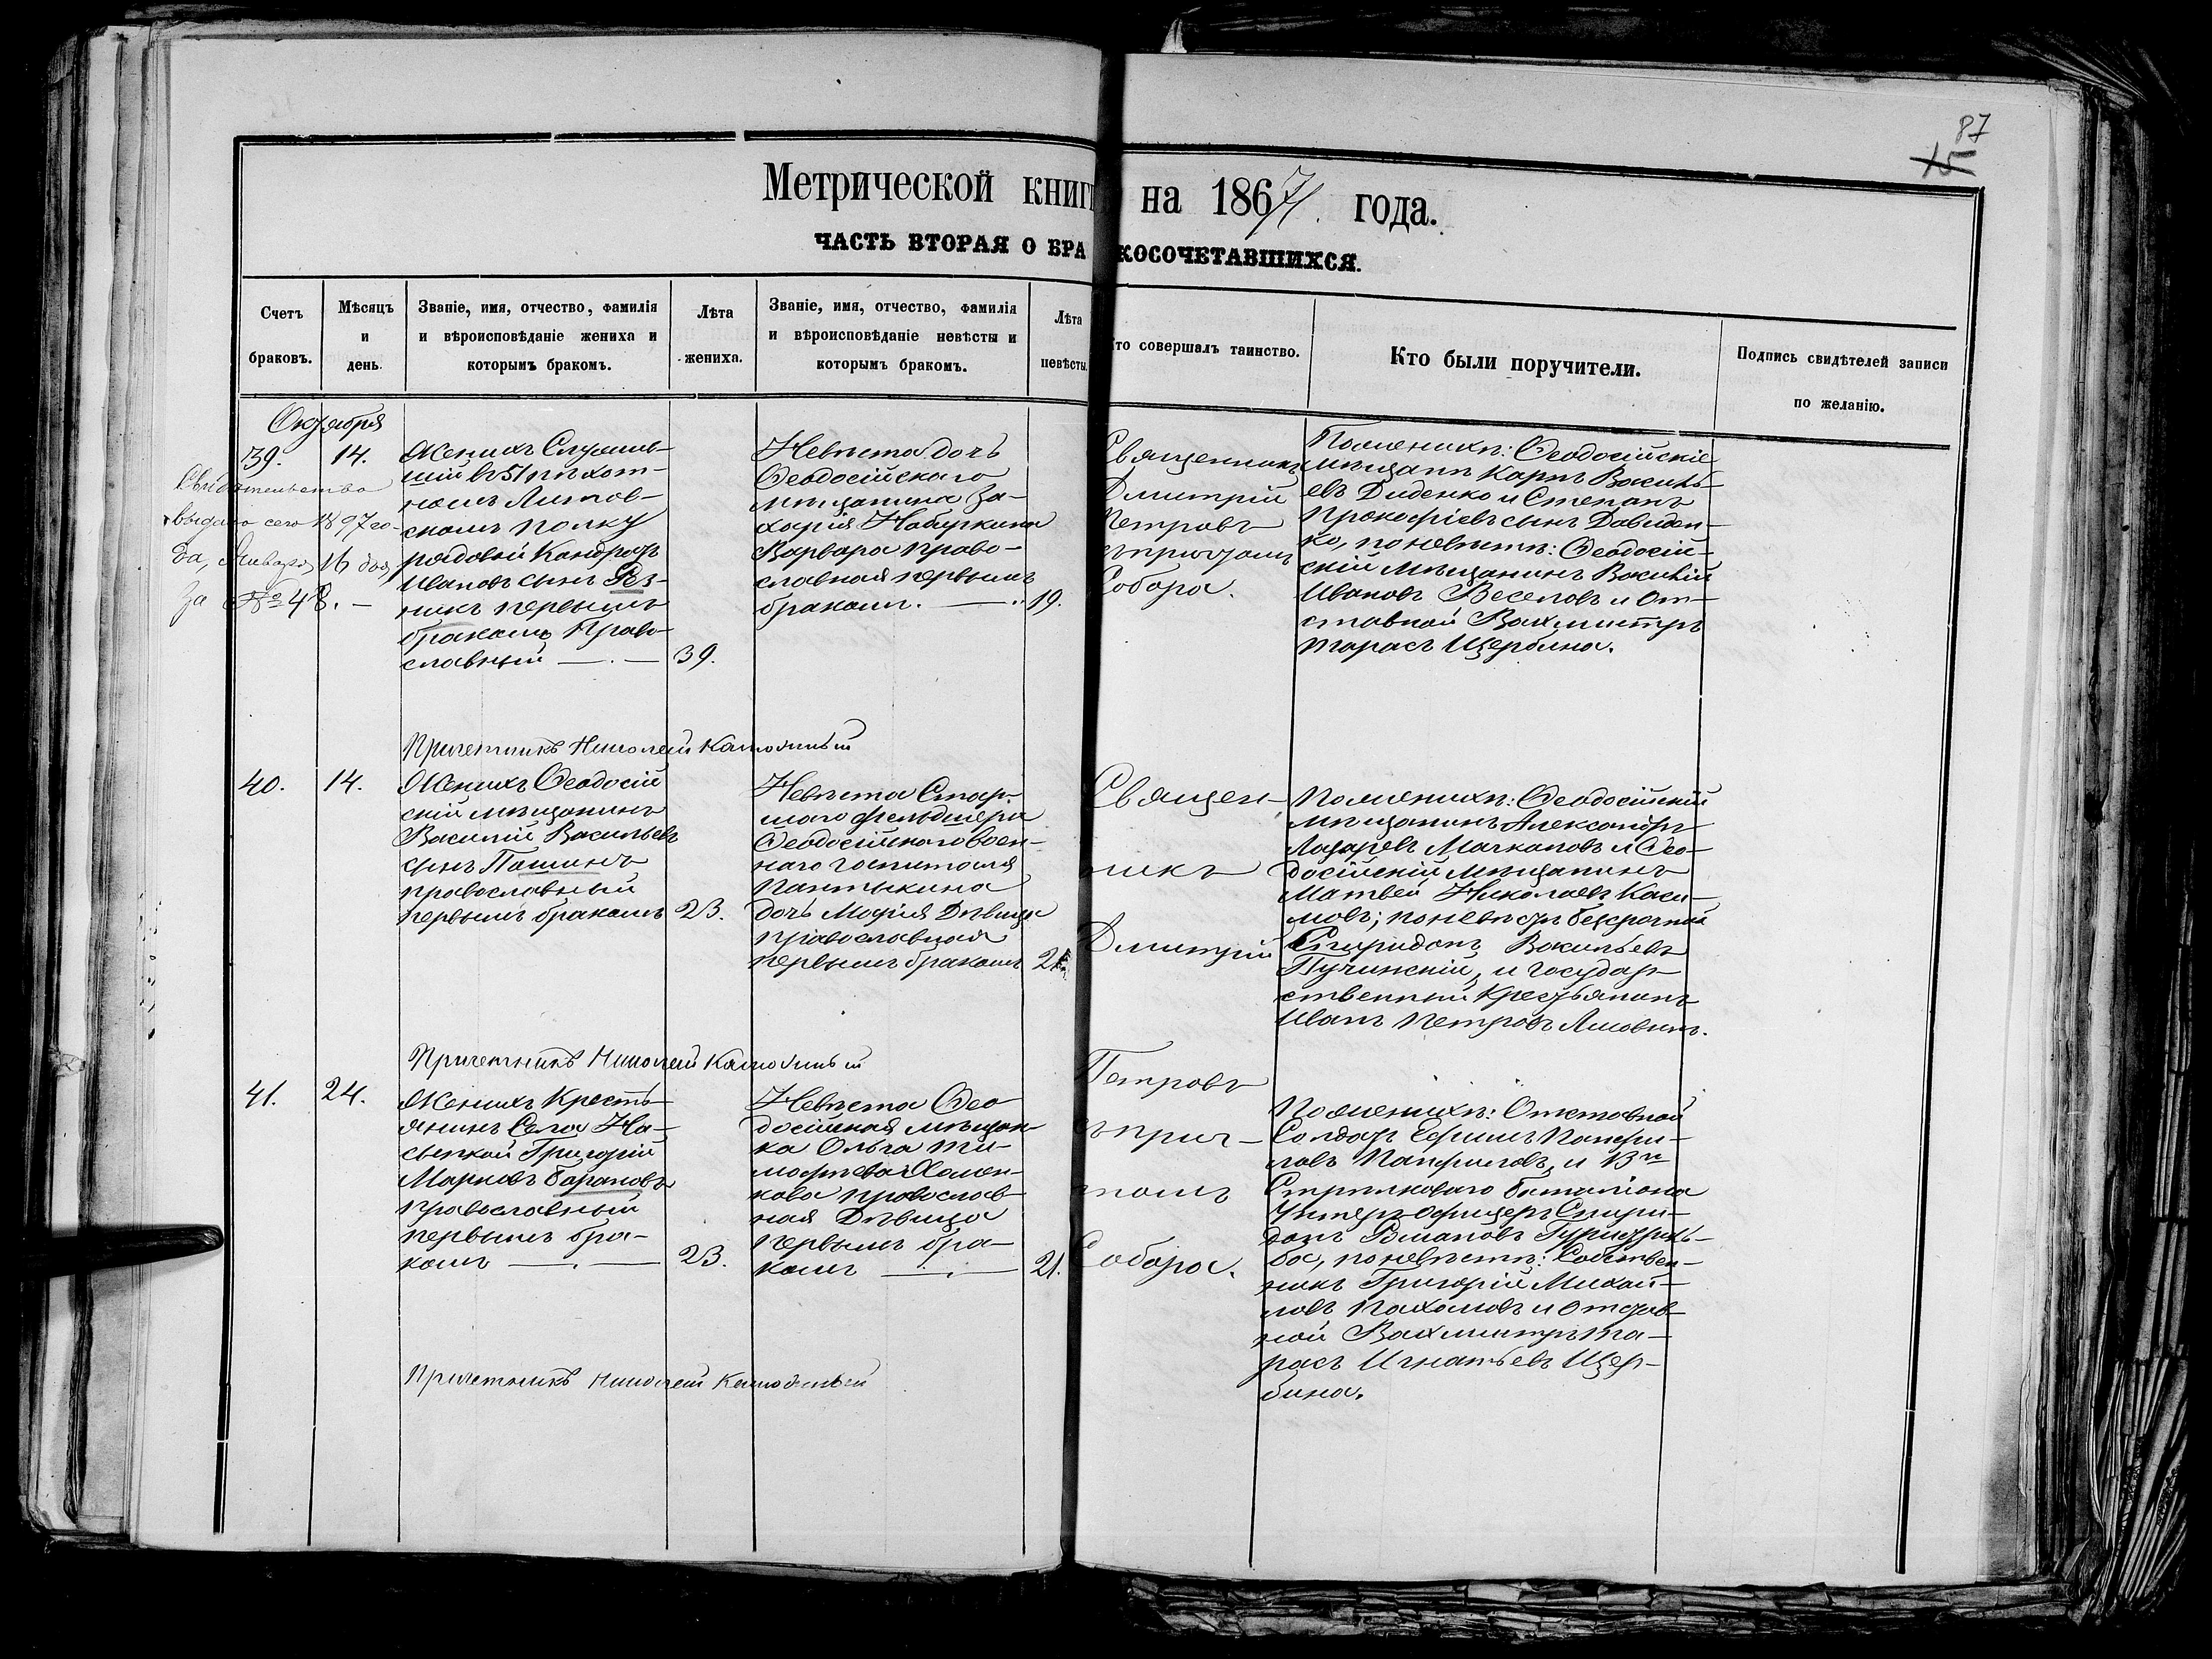 87
15
Метрической книг на 1867/1. года.
ЧАСТЬ ВТОРАЯ О БРА КОСОЧЕТАВШИХСЯ.
Счетъ
браковъ.
Мѣсяцъ
и
день.
Званіе, имя, отчество, фамилія
и вѣроисповѣданіе жениха и
которымъ бракомъ.
Лѣта
жениха.
Званіе, имя, отчество, фамилія
и вѣроисповѣданіе невѣсты и
которымъ бракомъ.
Лѣта
невѣсты.
то совершалъ таинство.
Кто были поручители.
Подпись свидѣтелей записи
по желанію.
Октября
39.
14.
Свидѣтельство
выдано сего 1897 го-
да, Января 16 дня
за №48. —
Женихъ Служив-
шій въ 51 пѣхот-
номъ Литов-
скомъ полку
рядовой Кондратъ
Ивановъ сынъ Рез-
никъ первымъ
бракомъ Право-
славный —.—
39.
Невѣста дочь
Ѳеодосійскаго
мѣщанина За-
харія Набуркина
Варвара право-
славная первымъ
бракомъ. —..
19.
Священникъ
Дмитрій
Петровъ
съ причтомъ
Собора.
По женихѣ: Ѳеодосійскіе
мѣщане Карпъ Василь-
евъ Диденко и Степанъ
Прокофіевъ сынъ Давиден-
ко, по невѣстѣ: Ѳеодосій-
скій мѣщанинъ Василій
Ивановъ Веселовъ и От-
ставной Вахмистръ
Тарасъ Щербина.
Причетникъ Николай
40.
14.
Женихъ Ѳеодосій
скій мѣщанинъ
Василій Васильевъ
сынъ Пашинъ
православный
первымъ бракомъ
23.
Невѣста Стар-
шаго фельдшера
Ѳеодосійскаго воен-
наго госпиталя
Пантыкина
дочь Марія Дѣвица
православная
первымъ бракомъ
Священ-
никъ
Дмитрій
По женихѣ: Ѳеодосійскій
мѣщанинъ Александръ
Лазаревъ Мачкаловъ и Ѳео-
досійскій мѣщанинъ
Матвей Николаевъ Каси-
мовъ; по невѣстѣ безсрочной
Спиридонъ Васильевъ
Пучинскій, и Государ-
ственный крестьянинъ
Иванъ Петровъ
Причетникъ Николай
41.
24.
Женихъ Кресть-
янинъ Села На-
сыпкой Григорій
Марковъ Барановъ
православный
первымъ бра-
комъ —.—
23.
Невѣста Ѳео
досійская мѣщан
ка Ольга Ти-
мофѣева Хомен-
кова православ-
ная Дѣвица
первымъ бра-
комъ —.—
21.
Петровъ
съ прич-
томъ
Собора.
По женихѣ: Отставной
Солдатъ Ефимъ Панфи-
ловъ Панфиловъ, и 13го
Стрѣлковаго баталіона
Унтеръ-офицеръ Спири-
донъ Романовъ
ба, по невѣстѣ: Собствен-
никъ Григорій Михай-
ловъ Пахомовъ и Отстав-
ной Вахмистръ Та-
расъ Игнатьевъ Щер-
бина.
Причетникъ Николай